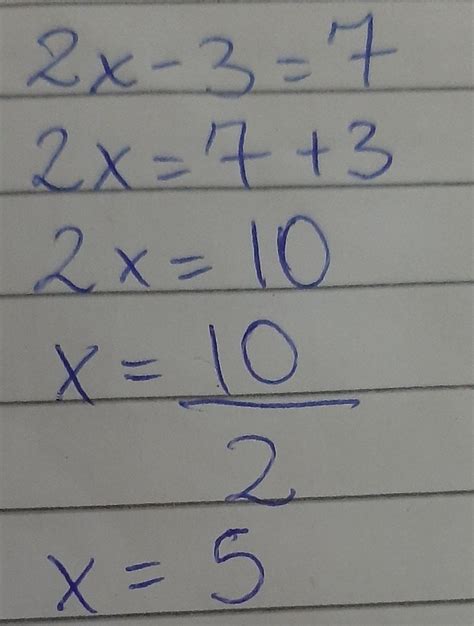 2x - 3 = 7
2x = 7 + 3
2x = 10
x = 10
2
x = 5